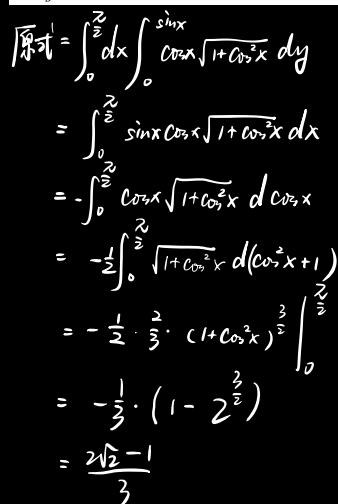 原式 = ∫₀^{π/2} dx ∫₀^{sinx} cosx √(1+cos²x) dy
= ∫₀^{π/2} sinx cosx √(1+cos²x) dx
= -∫₀^{π/2} cosx √(1+cos²x) d cosx
= -1/2 ∫₀^{π/2} √(1+cos²x) d(cos²x+1)
= -1/2 · 2/3 · (1+cos²x)^{3/2} |₀^{π/2}
= -1/3 · (1 - 2^{3/2})
= (2√2 - 1)/3